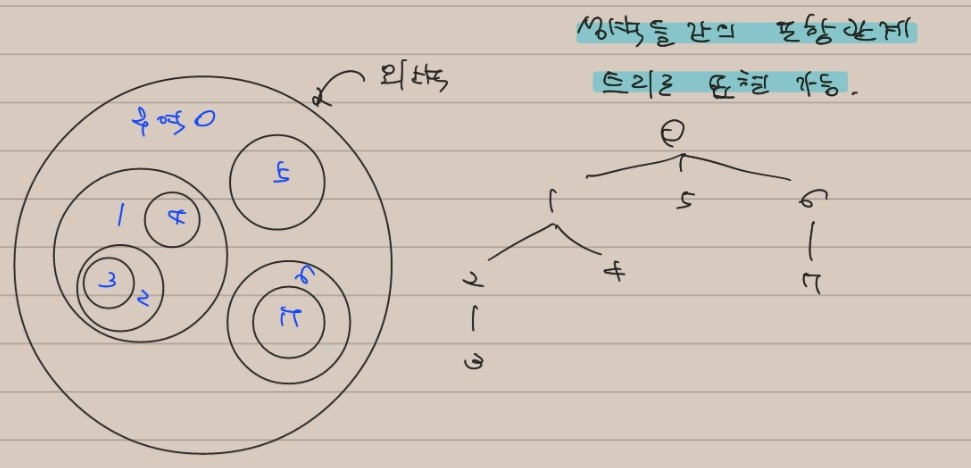 성벽들 간의 포함 관계
트리로 표현 가능.
외벽
구역 0
5
1
4
3
2
6
7
0
1 5 6
2 4 7
3